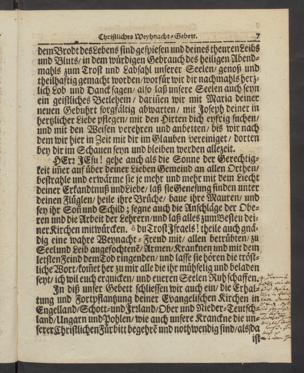 Christliches Weyhnacht-Gebett. 7
dem Brodt des Lebens sind gespeiset und deines theuren Leibs
und Bluts/ in dem würdigen Gebrauch des heiligen Abend-
mahls zum Trost und Labsahl unserer Seelen/ genoß und
theilhafftig gemacht worden/ worfür wir dir nachmahls hertz-
lich Lob und Danck sagen/ also laß unsere Seelen auch seyn
ein geistliches Bethlehem/ darinen wir mit Maria deiner
neuen Gebuhrt sorgfältig abwarten/ mit Joseph deiner in
hertzlicher Liebe pflegen/ mit den Hirten dich eyfrig suchen/
und mit den Weisen verehren und anbetten/ biß wir nach
dem wir hier in Zeit mit dir im Glauben vereiniget/ dorten
bey dir im Schauen seyn und bleiben werden allezeit.
HErr JEsu! gehe auch als die Sonne der Gerechtig-
keit über deiner lieben Gemeind an allen Orthen/
bestrahle und erwärme sie je mehr und mehr mit dem Liecht
deiner Erkandtnuß und Liebe/ laß sie Genesung finden unter
deinen Flüglen/ heile ihre Brüche/ baue ihre Mauren/ und
sey ihr Soñ und Schild; segne auch die Anschläge der Obe-
ren und die Arbeit der Lehrern/ und laß alles zum Besten dei-
ner Kirchen mitwürcken. ô du Trost Jsraels! theile auch gnä-
dig eine wahre Weynacht-Freud mit/ allen betrübten/ zu
Seel und Leib angefochtenē/ Armen/ Krancknen und mit dem
letsten Feind dem Tod ringenden/ und lasse sie hören die tröst-
liche Wort/ kom̃et her zu mir alle die ihr mühselig und beladen
seyt/ ich wil euch erquicken/ und eueren Seelen Ruh schaffen.
In diß unser Gebett schliessen wir auch ein/ die Erhal-
tung und Fortpflantzung deiner Evangelischen Kirchen in
Engelland/ Schott- und Irland/ Ober und Nieder-Teutsch-
land/ Ungarn und Pohlen/ wie auch unsere Krancknen die un-
serer Christlichen Fürbitt begehrē und nothwendig sind/ als da
ist